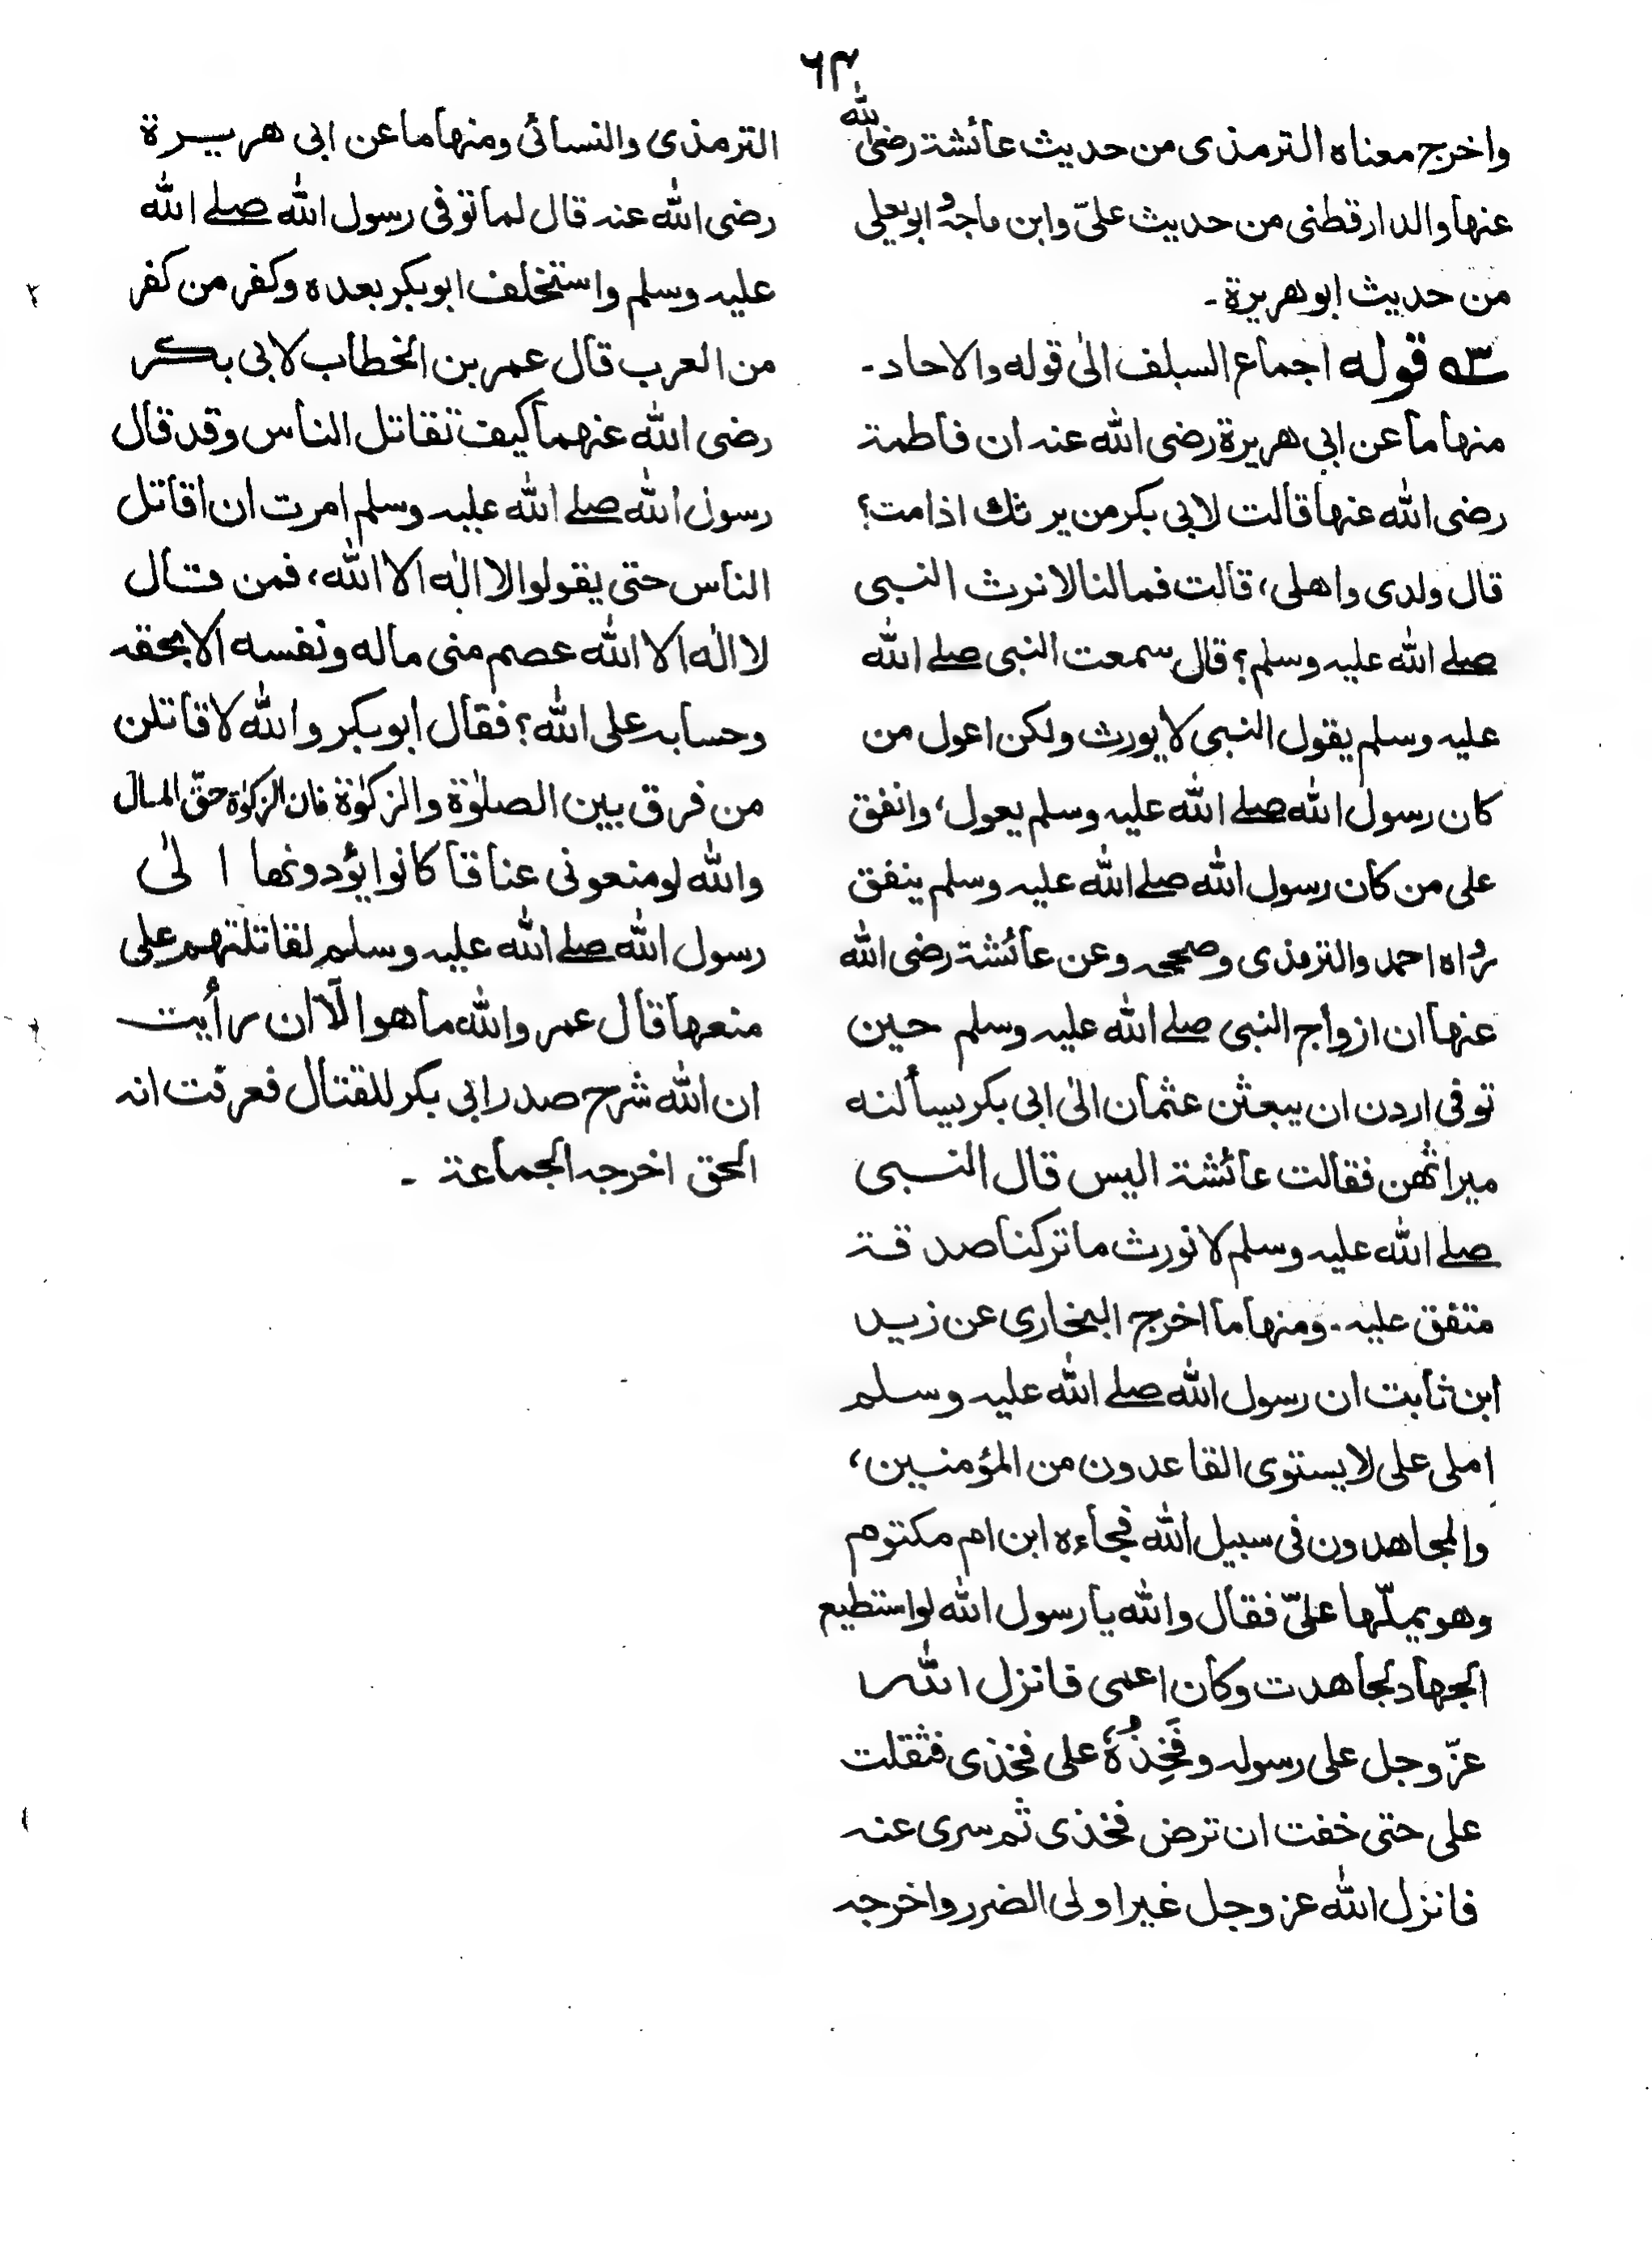 ٦٣
واخرج معناه الترمذی من حدیث عائشة رضی الله
عنها والدارقطنی من حدیث علیّ وابن ماجة وابویعلی
من حدیث ابو هریرة۔
٥٣ قوله اجماع السلف الیٰ قوله والاحاد۔
منها ما عن ابی هریرة رضی الله عنه ان فاطمة
رضی الله عنها قالت لابی بکر من یرثك اذا مت؟
قال ولدی واهلی، قالت فمالنا لا نرث النبی
صلے الله علیه وسلم؟ قال سمعت النبی صلے الله
علیه وسلم یقول النبی لا یورث ولکن اعول من
کان رسول الله صلے الله علیه وسلم یعول، وانفق
علی من کان رسول الله صلے الله علیه وسلم ینفق
رواه احمد والترمذی وصححه وعن عائشة رضی الله
عنها ان ازواج النبی صلے الله علیه وسلم حین
توفی اردن ان یبعثن عثمان الیٰ ابی بکر یسألنه
میراثهن فقالت عائشة الیس قال النبی
صلے الله علیه وسلم لا نورث ما ترکنا صدقة
متفق علیه۔ ومنها ما اخرج البخاری عن زید
ابن ثابت ان رسول الله صلے الله علیه وسلم
املی علی لا یستوی القاعدون من المؤمنین،
والمجاهدون فی سبیل الله فجاءه ابن ام مکتوم
وهو یملّها علیّ فقال والله یا رسول الله لو استطیع
الجهاد لجاهدت وکان اعمی فانزل الله
عزّ وجل علی رسوله وفَخِذُهٗ علی فخذی فثقلت
علی حتی خفت ان ترض فخذی ثم سری عنه
فانزل الله عز وجل غیر اولی الضرر واخرجه
الترمذی والنسائی ومنها ما عن ابی هریرة
رضی الله عنه قال لما توفی رسول الله صلے الله
علیه وسلم واستخلف ابوبکر بعده وکفر من کفر
من العرب قال عمر بن الخطاب لابی بکر
رضی الله عنهما کیف تقاتل الناس وقد قال
رسول الله صلے الله علیه وسلم امرت ان اقاتل
الناس حتی یقولوا لا اله الا الله، فمن قال
لا اله الا الله عصم منی ماله ونفسه الا بحقه
وحسابه علی الله؟ فقال ابوبکر والله لاقاتلن
من فرق بین الصلوٰة والزکوٰة فان الزکوٰة حقّ المال
والله لو منعونی عناقا کانوا یؤدونها الیٰ
رسول الله صلے الله علیه وسلم لقاتلتهم علی
منعها قال عمر والله ما هو الّا ان رأیت
ان الله شرح صدر ابی بکر للقتال فعرفت انه
الحق اخرجه الجماعة۔